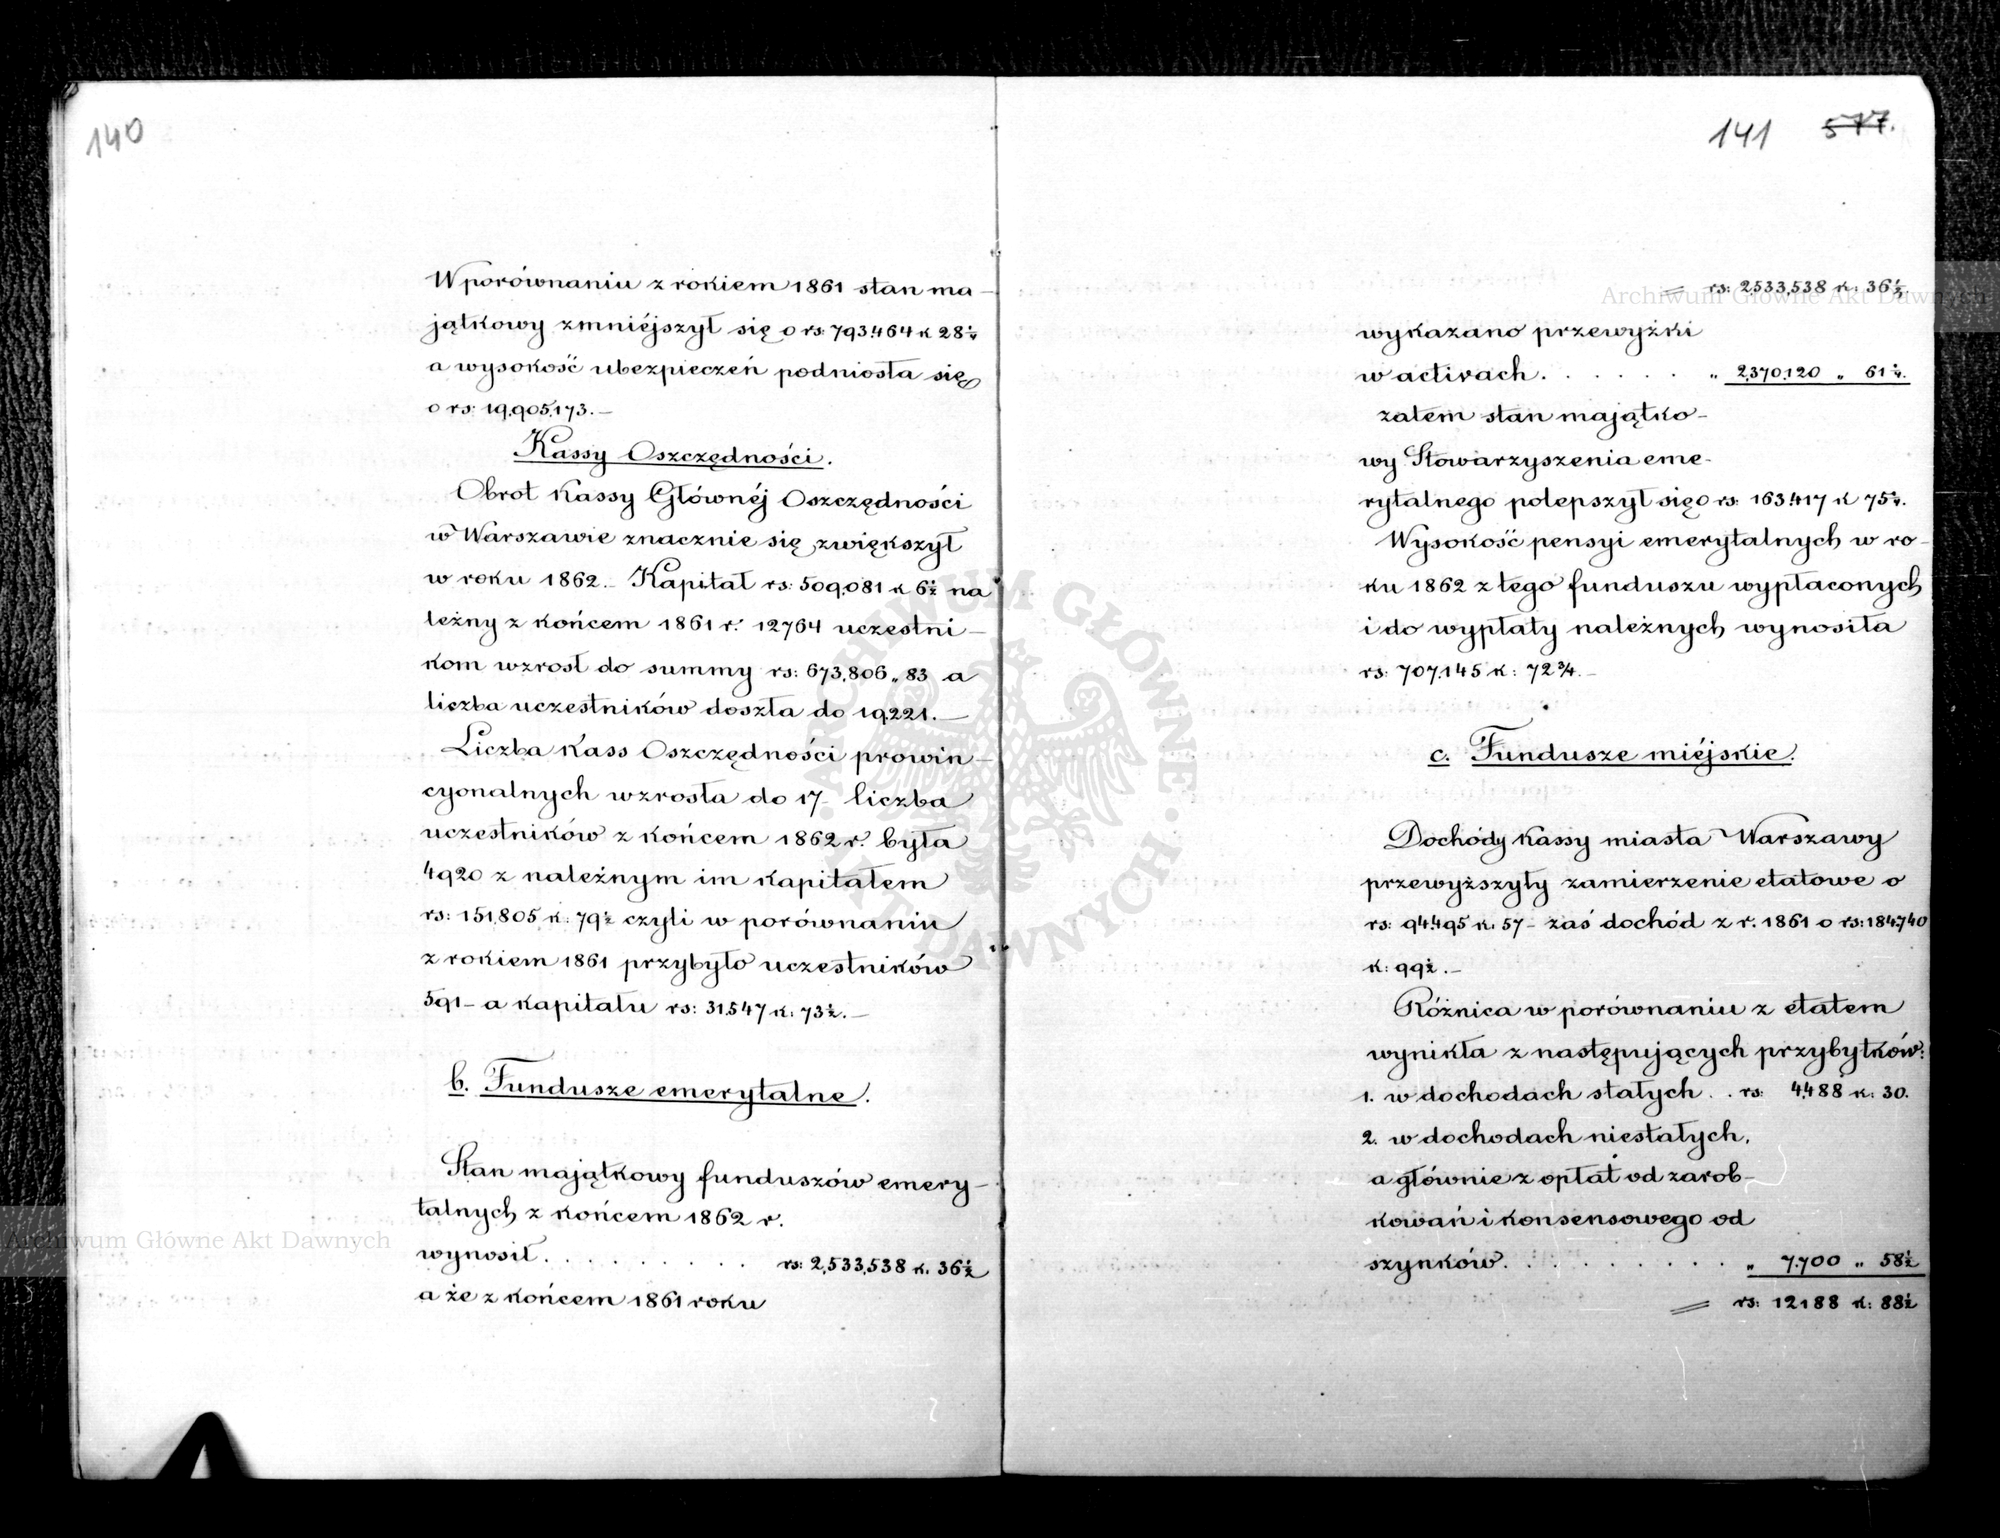 140
W porównaniu z rokiem 1861 stan ma-
jątkowy zmniéjszył się o rs: 793,464 k 28½
a wysokość ubezpieczeń podniosła się
o rs: 19,905,173.—
Kassy Oszczędności.
Obrot Kassy Głównéj Oszczędności
w Warszawie znacznie się zwiększył
w roku 1862.- Kapitał rs: 509,081 k 6½ na
leżny z końcem 1861 r. 12764 uczestni-
kom wzrosł do summy rs: 673,806 „ 83 a
liczba uczestników doszła do 19,221.—
Liczba Kass Oszczędności prowin-
cyonalnych wzrosła do 17- liczba
uczestników z końcem 1862 r. była
4920 z należnym im kapitałem
rs: 151,805 k: 79½ czyli w porównaniu
z rokiem 1861 przybyło uczestników
591- a kapitału rs: 31,547 k: 73½.—
b. Fundusze emerytalne.
Stan majątkowy funduszów emery-
talnych z końcem 1862 r.
wynosił. . . . . . . . . rs: 2,533,538 k. 36½
a że z końcem 1861 roku
141 577.
= rs: 2,533,538 k: 36½.
wykazano przewyżki
w activach. . . . . . „ 2,370,120 „ 61¼.
zatem stan majątko-
wy Stowarzyszenia eme-
rytalnego polepszył się o rs: 163,417 k 75¼.
Wysokość pensyi emerytalnych w ro-
ku 1862 z tego funduszu wypłaconych
i do wypłaty należnych wynosiła
rs: 707,145 k: 72¾.-
c. Fundusze miéjskie.
Dochódy Kassy miasta Warszawy
przewyższyły zamierzenie etatowe o
rs: 94,495 k. 57- zaś dochód z r. 1861 o rs: 184,740
k: 99½.—
Różnica w porównaniu z etatem
wynikła z następujących przybytków:
1. w dochodach stałych. . rs: 4,488 k: 30.
2. w dochodach niestałych,
a głównie z opłat od zarob-
kowań i konsensowego od
szynków. . . . . . . . . „ 7,700 „ 58½
= rs: 12188 k: 88½
Archiwum Główne Akt Dawnych
Archiwum Główne Akt Dawnych
ARCHIWUM GŁÓWNE · AKT DAWNYCH ·